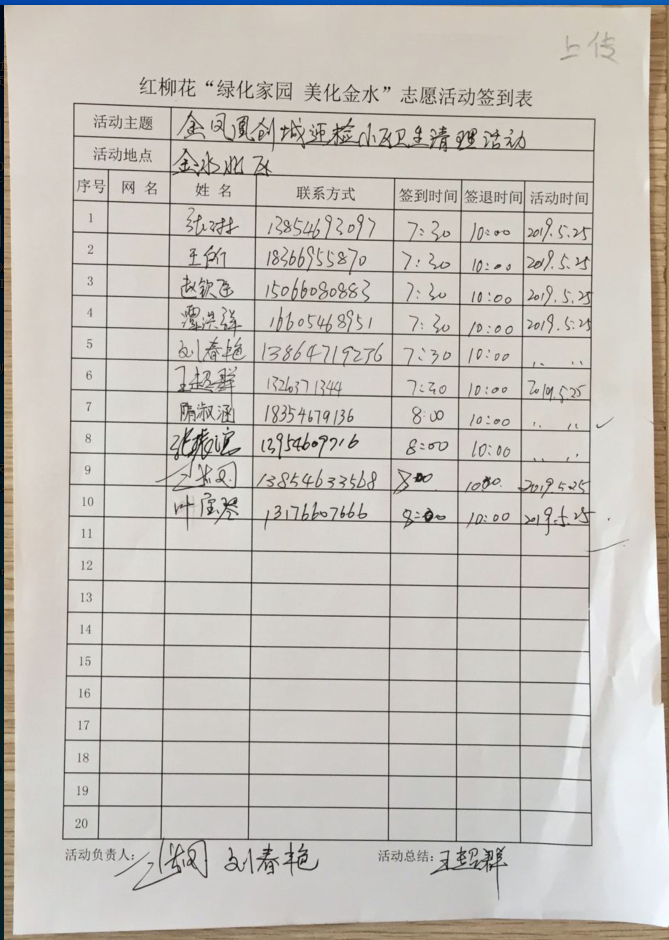 上传
红柳花“绿化家园 美化金水”志愿活动签到表
活动主题 金凤凰创城迎检小区卫生清理活动
活动地点 金水小区
序号 网名 姓名 联系方式 签到时间 签退时间 活动时间
1 13854693097 7:30 10:00 2019.5.25
2 18366955870 7:30 10:00 2019.5.25
3 赵钦 15066080883 7:30 10:00 2019.5.25
4 潭洪群 16605468951 7:30 10:00 2019.5.25
5 刘春艳 13864719256 7:30 10:00 〃 〃
6 王超群 1326371344 7:30 10:00 2019.5.25
7 隋淑涵 18354679136 8:00 10:00 〃 〃
8 13954609716 8:00 10:00 〃 〃
9 13854633568 8:00 10:00 2019.5.25
10 叶宝琴 13176607666 8:00 10:00 2019.5.25
11
12
13
14
15
16
17
18
19
20
活动负责人: 刘春艳 活动总结: 王超群